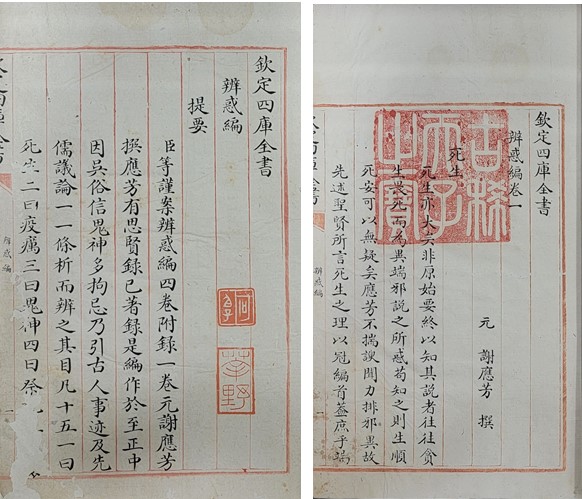 欽定四庫全書
辨惑編
提要
臣等謹案辨惑編四卷附錄一卷元謝應芳
撰應芳有思賢録已著録是編作於至正中
因吳俗信鬼神多拘忌乃引古人事迹及先
儒議論一一條析而辨之其目凡十五一曰
死生二曰疫癘三曰鬼神四曰祭
辨惑編
欽定四庫全書
辨惑編卷一
元 謝應芳 撰
死生
死生亦大矣非原始要終以知其說者往往貪
生畏死而為異端邪說之所惑苟知之則生順
死安可以無疑矣應芳不揣謏聞力排邪異故
先述聖賢所言死生之理以冠編首蓋庶乎端
辨惑編
古稀天子之寶